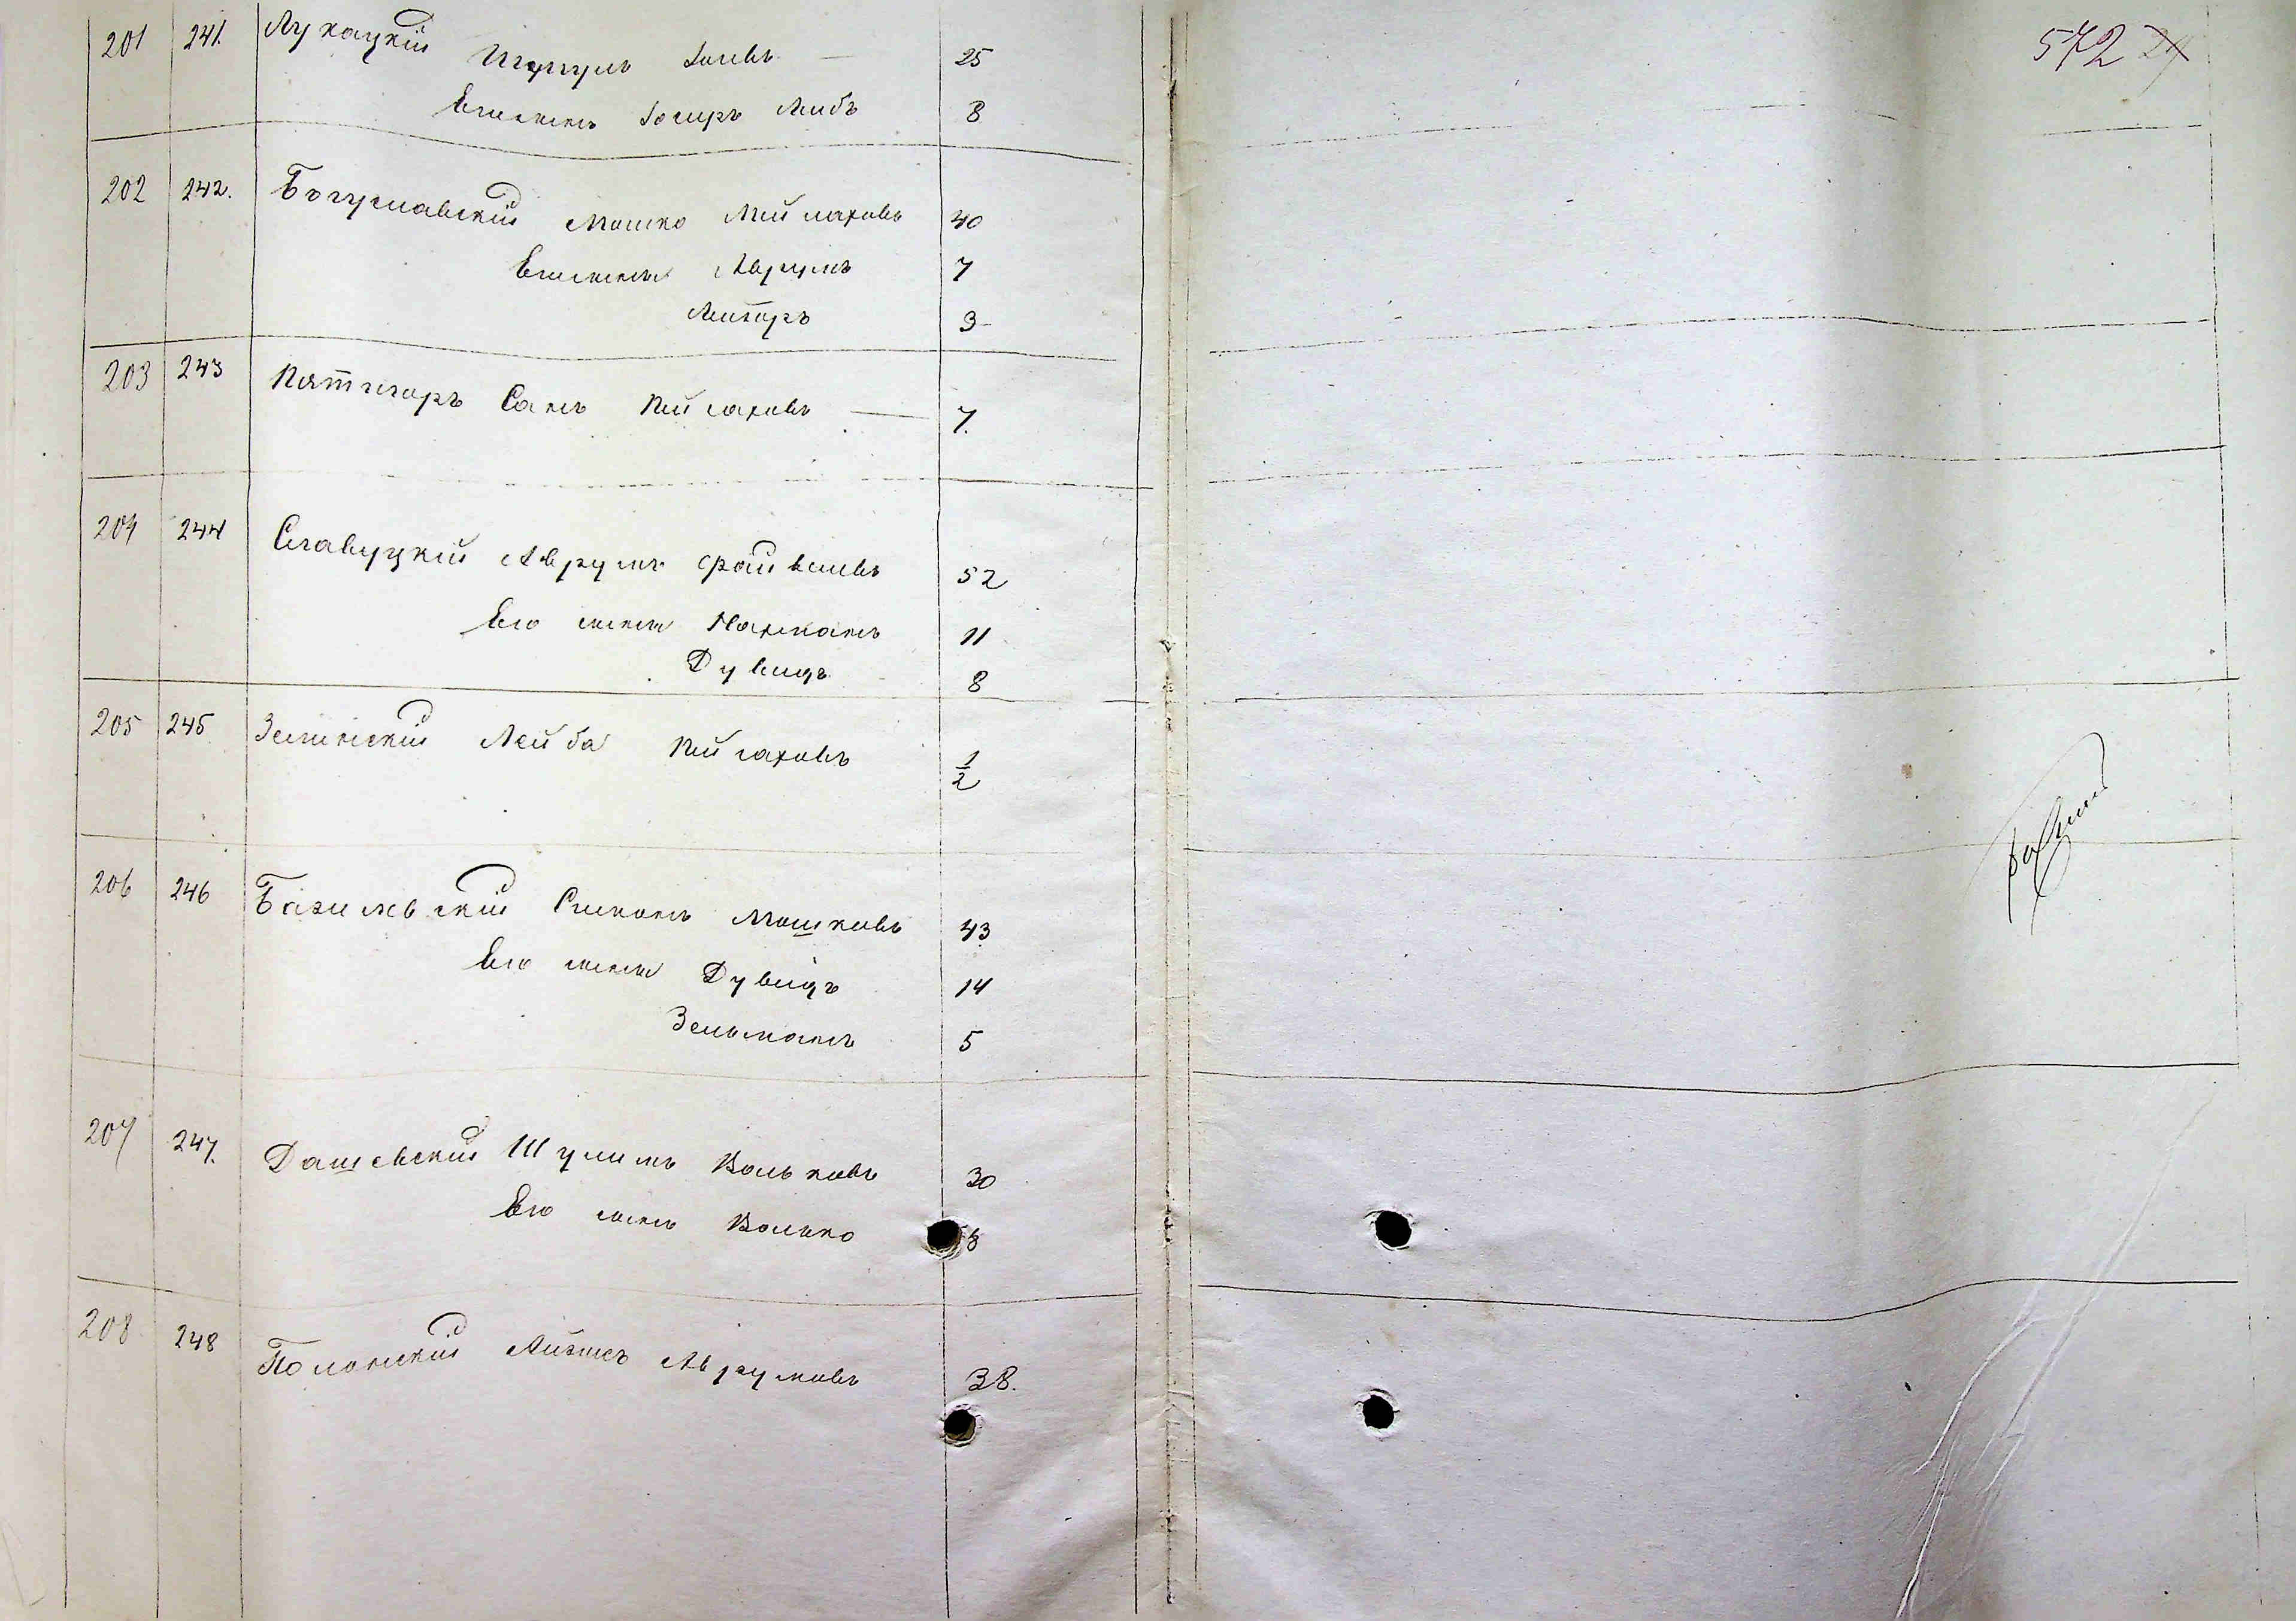 201 241. Лукацкій Шмуль 25
Его сынъ Лейбъ 8
202 242. Богуславскій Мошко Мейлаховъ 40
Его сыны Аврумъ 7
Лейзоръ 3
203 243 Пятигоръ Санъ Мейлаховъ 7.
204 244 Славуцкій Аврумъ Файвелевъ 52
Его сыны Нахманъ 11
Дувидъ 8
205 245 Зелинскій Лейба Мейлаховъ 1/2
206 246 Базилевскій Симонъ Мошковъ 43
Его сыны Дувидъ 14
Зельманъ 5
207 247. Дашевскій Шулимъ Вольковъ 30
Его сынъ Волько 8
208 248 Полонскій Айзикъ Аврумовъ 38.
572